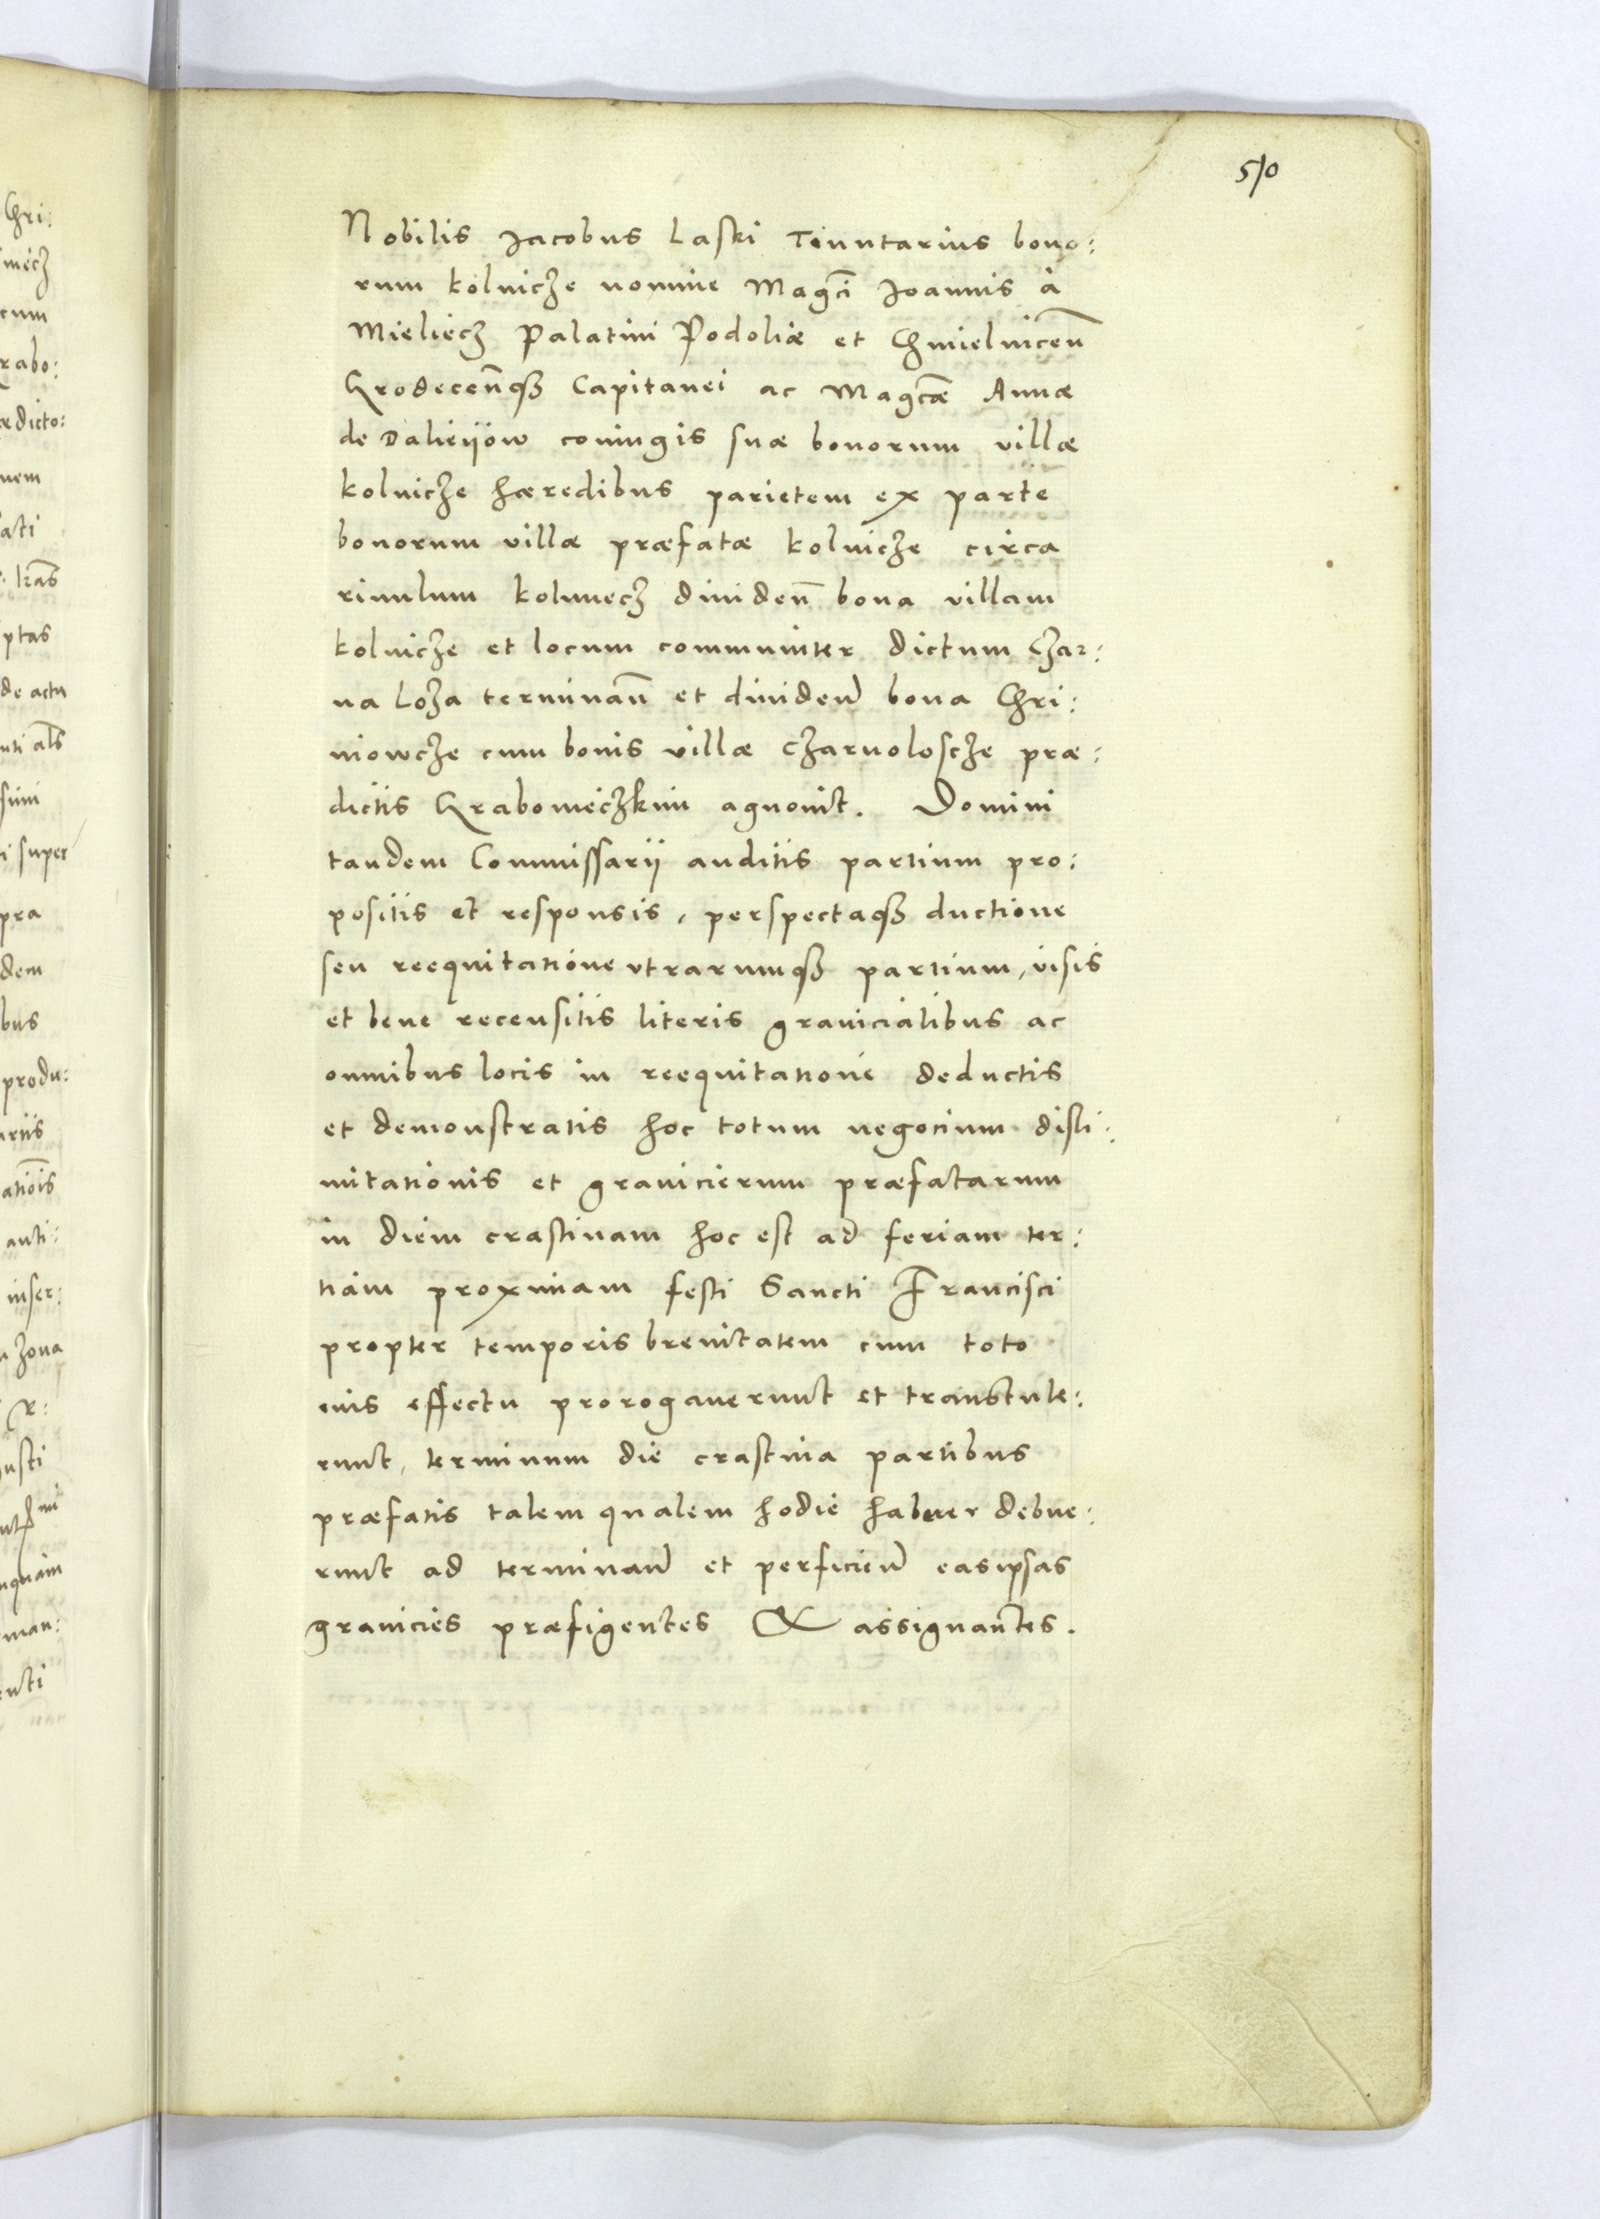 510
Nobilis Jacobus Laski Tenutarius bono:
rum kolnicze nomine Mag̃ci Joannis à
Mieliecz Palatini Podoliæ et Chmielniceñ
Grodeceñq3 Capitanei ac Mag̃cæ Annæ
de Daliejow coniugis suæ bonorum villæ
kolnicze hæredibus parietem ex parte
bonorum villæ præfatæ kolnicze circa
riuulum kolniecz diuideñ bona villam
kolnicze et locum communiter dictum Czar:
na Loza terminañ et diuideñ bona Chri:
niowcze cum bonis villæ Czarnoloscze præ:
dictis Grabowieczkim agnouit. Domini
tandem Commissarij auditis partium pro:
positis et responsis, perspectaq3 ductione
seu reequitatione vtrarumq3 partium, visis
et bene recensitis literis granicialibus ac
omnibus locis in reequitatione deductis
et demonstratis hoc totum negocium disli:
mitationis et granicierum præfatarum
in diem crastinam hoc est ad feriam ter:
tiam proximam festi Sancti Francisci
propter temporis breuitatem cum toto
eius effectu prorogauerunt et transtule:
runt, terminum die crastina partibus
præfatis talem qualem hodie habuer debue:
runt ad terminañ et perficieñ easipsas
granicies præfigentes & assignantes.
Chri:
rabo:
dicto:
nem
ptas
de actu
super
pra
dem
bus
produ:
anti:
inser:
zona
usti
man: